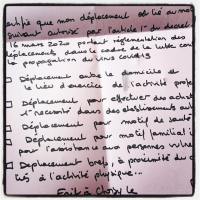 certifie que mon déplacement est lié au motif
suivant autorisé par l'article 1er du décret
16 mars 2020 portant réglementation des
déplacements dans le cadre de la lutte con
la propagation du virus covid19
□ Déplacement entre le domicile et
le lieu d'exercice de l'activité profe
□ Déplacement pour effectuer des achats
1e nécessité dans des établissements aut
□ Déplacement pour motif de santé
□ Déplacement pour motif familial i
pour l'assistance aux personnes vulné
□ Déplacement brefs, à proximité du d
liés à l'activité physique...
Fait à Choisy le